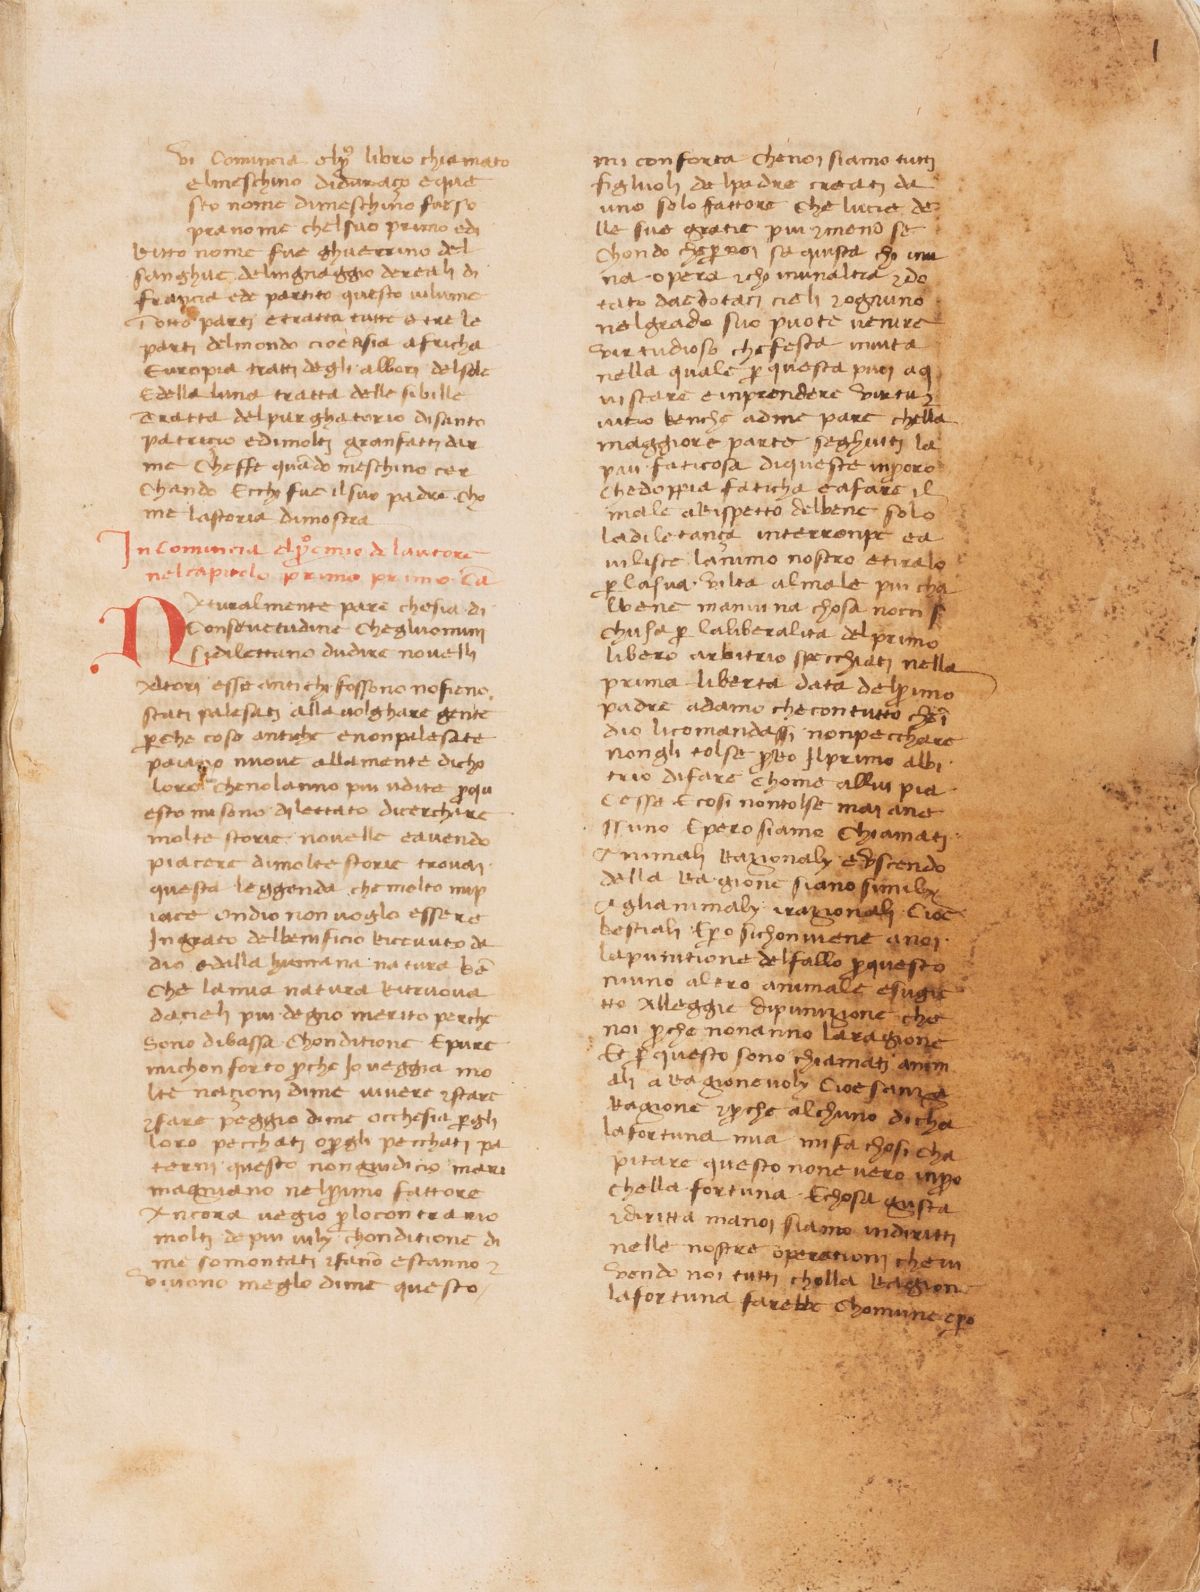 1
vi Comincia elpº libro chiamato
elmeschino didurazo eque
sto nome dimeschino fueso
pranome chelsuo primo edi
ritto nome fue ghuerrino del
sanghue delingnaggio dereali di
francia ede partito questo vilume
Jnotto parti etratta tutte etre le
parti delmondo cioe asia africha
Europia tratti degli albori delsole
Edella luna tratta delle sibille
Tratta delpurghatorio disanto
patricio edimolti granfatti dar
me Cheffe quādo meschino cer
chando Ecchi fue ilsuo padre cho
me lastoria dimostra
In Comincia elpºemio de lautore
nelcapitolo primo primo Ca
Naturalmente pare chesia di
Consuetudine Chegliuomini
sidilettano dudire novelli
Altori esse antichi fossono nosieno
stati palesati alla volghare gente
perche cose antiche enonpalesate
paiano nuove allamente dicho
loro chenolanno piu udite perqu
esto misono dilettato dicerchare
molte storie novelle eavendo
piacere dimolte storie trovai
questa leggenda che molto mip
iace ondio non voglo essere
Ingrato delbenificio ricevuto da
dio edalla humana natura bē
che lamia natura ritruova
dacieli piu degno merito perche
sono dibassa chonditione Epure
michonforto perche Io veggia mo
lte nacioni dime vivere 7stare
7fare peggio dime occhesia pergli
loro pecchati opergli pecchati pa
terni questo nongiudicio mari
magniano nelprimo fattore
Ancora vegio perlocontrario
molti depiu vily chonditione di
me somontati 7sanō estanno 7
vivono meglo dime questo
mi conforta chenoi siamo tutti
figliuoli delpadre creati da
uno solo fattore che lucie de
lle sue gratie piu 7meno se
chondo cheper noi sa quista cho inu
na opera 7cho inunaltra 7do
tato daedotaci cieli 7ognuno
nelgrado suo puote venire
virtudioso chefesta invita
nella quale per questa puoi aq
uistare einprendere virtu 7
vitio benche adme pare chella
maggiore parte seghuiti la
piu faticosa diqueste inpero
chedoppia faticha eafare il
male arispetto delbene solo
ladiletanza interronpe ea
vilisce lanimo nostro etiralo
per lasua vilta almale piu cha
lbene maniuna chosa nocci s
chusa per laliberalita delprimo
libero arbitrio specchiati nella
prima liberta data delprimo
padre adamo checontutto che i
dio licomandassi nonpecchare
nongli tolse pero Ilprimo albi
trio difare chome allui pia
cesse E cosi nontolse mai ane
ssuno Epero siamo chiamati
Animali Razionaly euscendo
della Ragione siano similj
agli animaly irazionali Cioe
bestiali Epero sichonviene anoi
lapunitione delfallo perquesto
niuno altro animale esugie
tto Alleggie dipunizione che
noi perche nonanno laragione
Et per questo sono chiamati anim
ali aRagionevoly Cioe sanza
Ragione 7perche alchuno dicha
lafortuna mia mifa chosi cha
pitare questo none vero inpero
chella fortuna Echosa giusta
7diritta manoi siamo indiritti
nelle nostre operationi chevi
vendo noi tutti cholla Ragion
lafortuna farebbe chomune epero